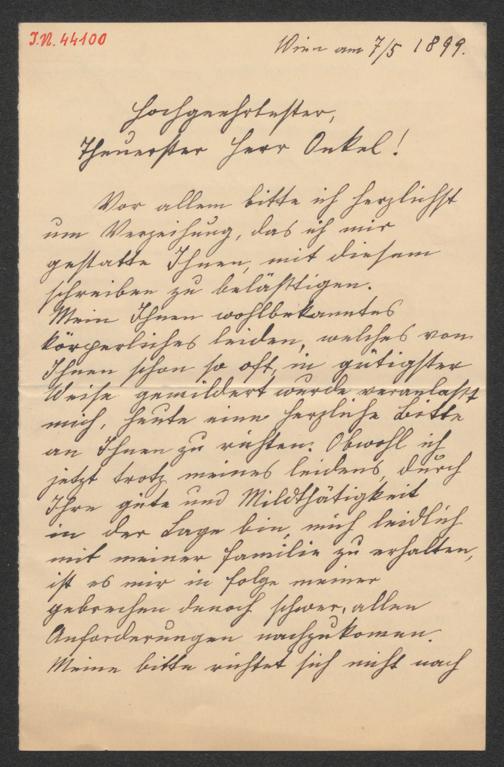 I.N. 44100
Wien am 7/5 1899.
Hochgeehrtester,
Theuerster Herr Onkel!
Vor allem bitte ich herzlichst
um Verzeihung, das ich mir
gestatte Ihnen, mit diesem
schreiben zu belästtigen.
Mein Ihnen wohlbekanntes
körperliches leiden, welches von
Ihnen schon so oft, in gütigster
Weise gemildert wurde, veranlaßt
mich, heute eine herzliche bitte
an Ihnen zu richten. Obwohl ich
jetzt trotz meines leidens, durch
Ihre güte und Mildthätigkeit
in der Lage bin, mich leidlich
mit meiner familie zu erhalten,
ist es mir in folge meiner
gebrechen denoch schwer, allen
Anforderungen nachzukomen.
Meine bitte richtet sich nicht nach